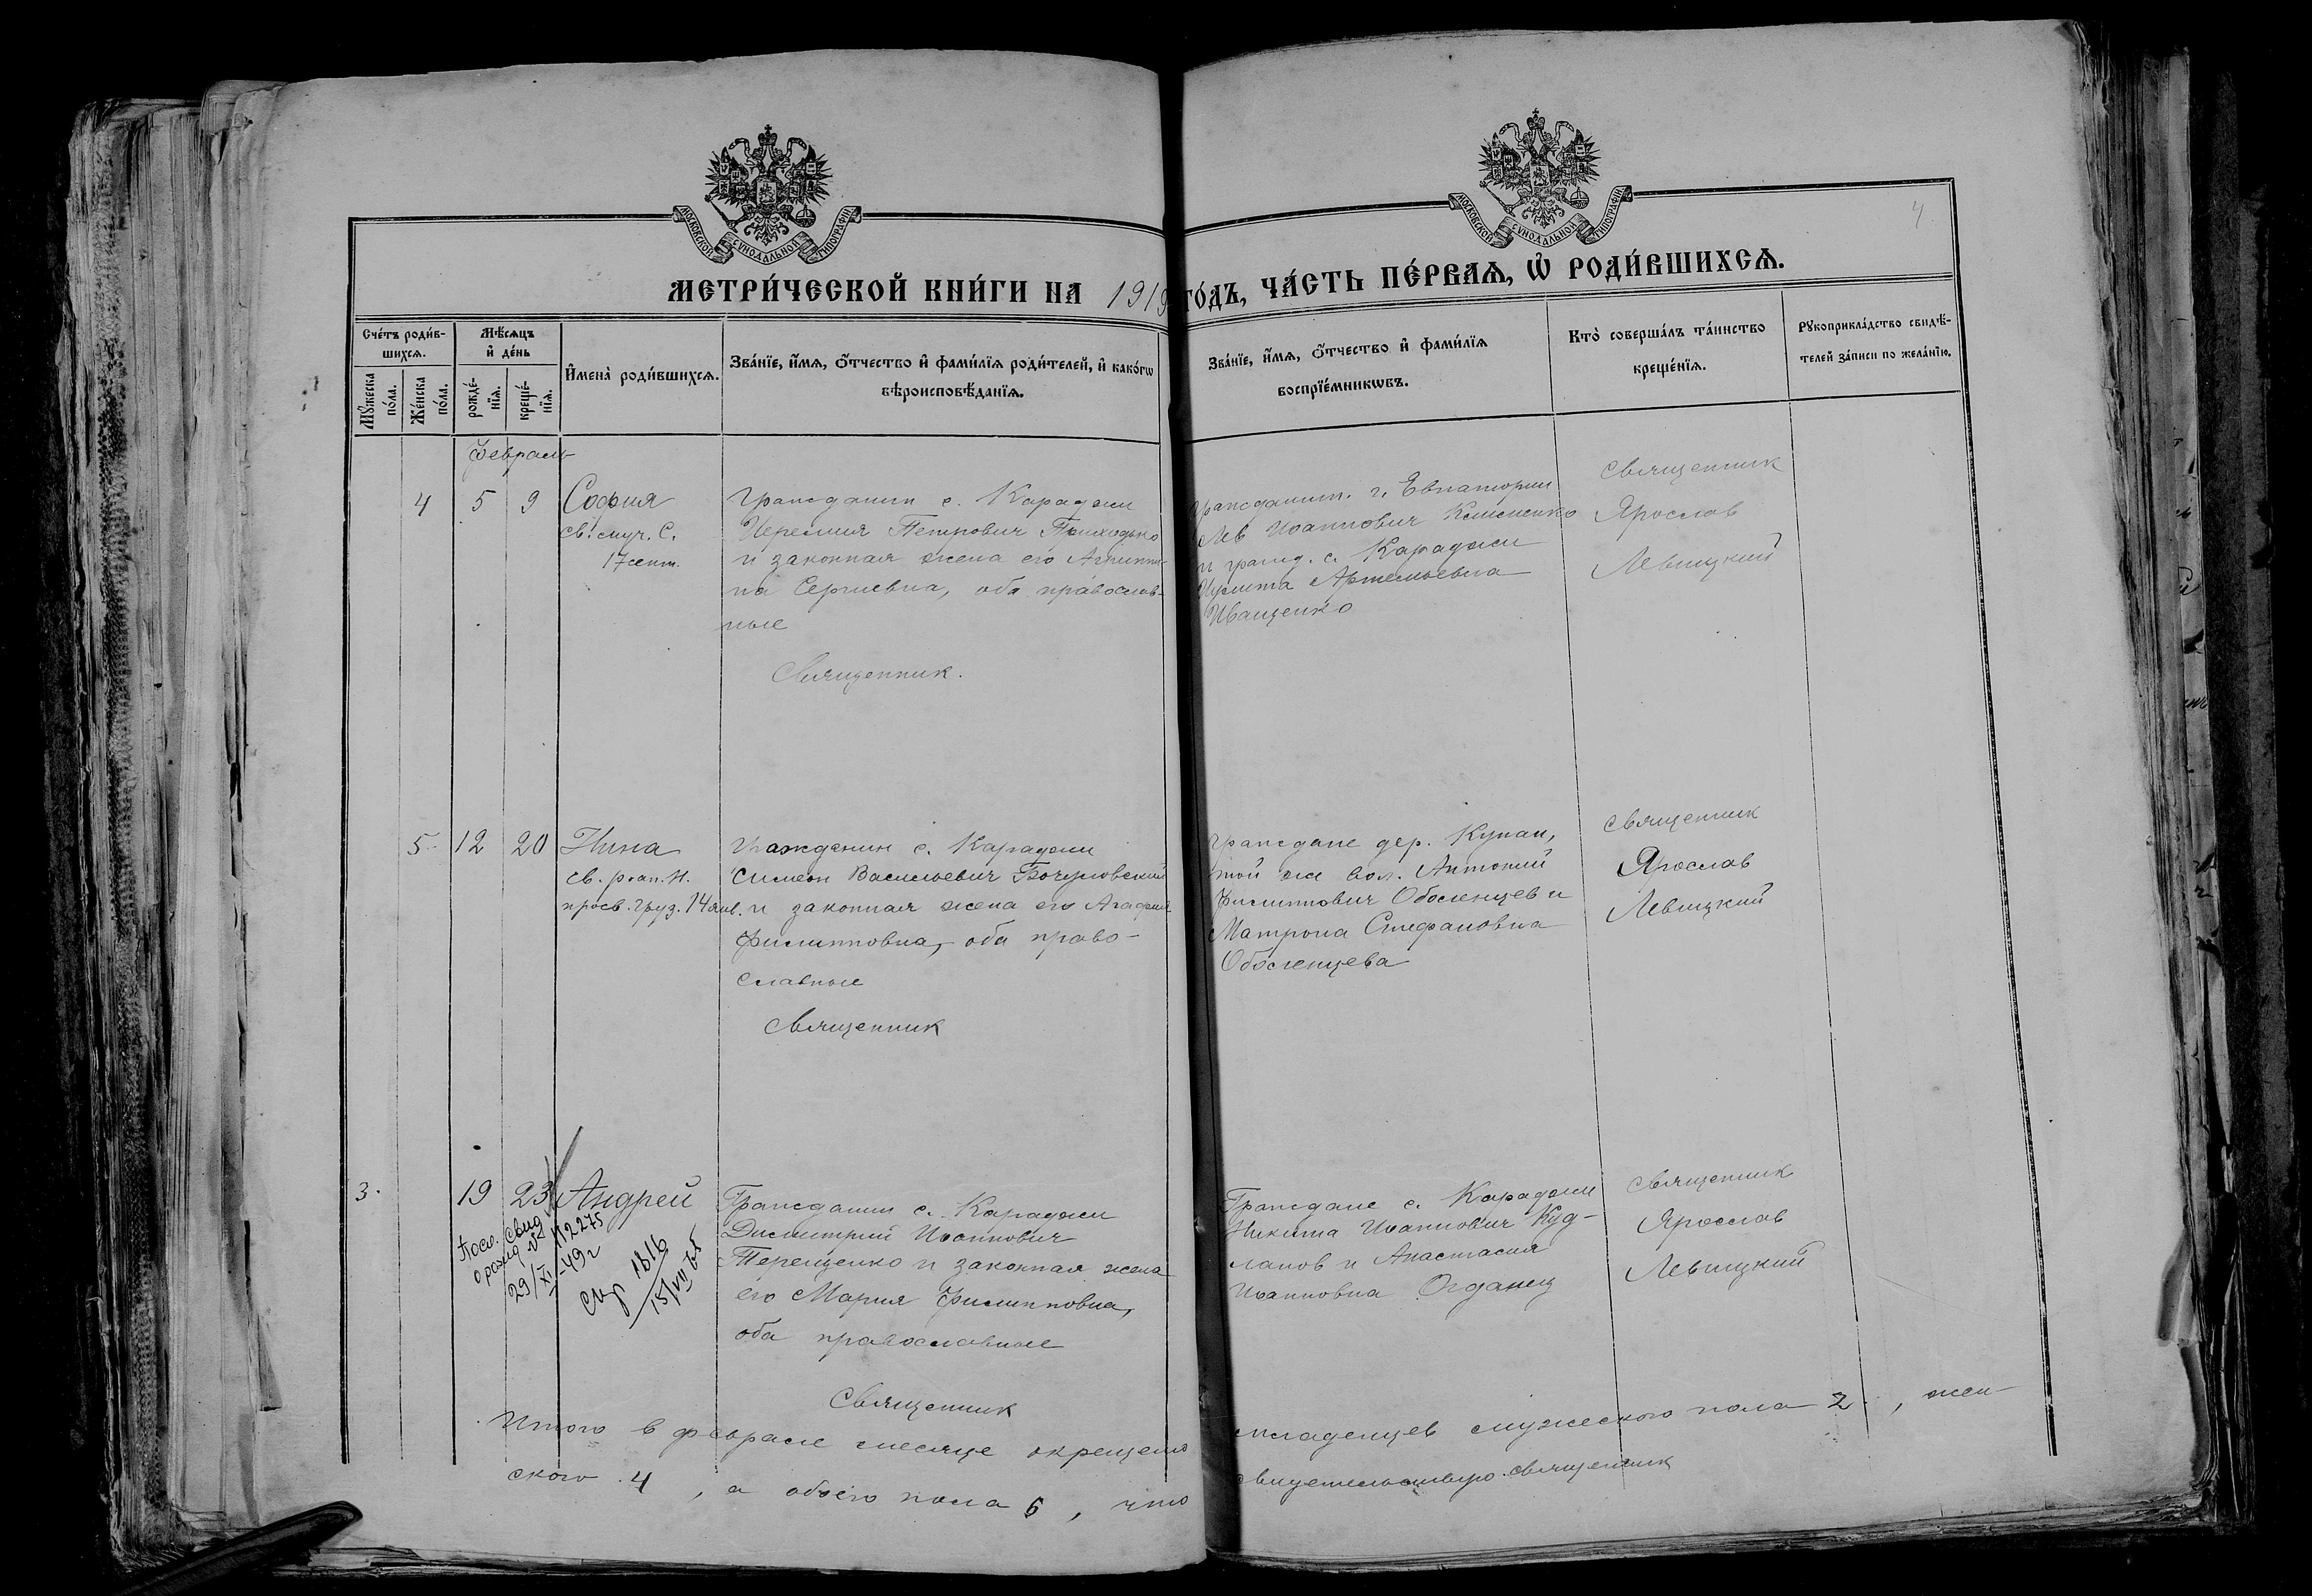 МОСКОВСКОЙ СѴНОДАЛЬНОЙ ТИПОГРАФІИ
МОСКОВСКОЙ СѴНОДАЛЬНОЙ ТИПОГРАФІИ
4
МЕТРИ́ЧЕСКОЙ КНИ́ГИ НА 1919 ГО́ДЪ, ЧА́СТЬ ПЕ́РВАѦ, Ѽ РОДИ́ВШИХСѦ.
Сче́тъ роди́в-
шихсѧ.
Мꙋ́жеска
по́ла.
Же́нска
по́ла.
Мѣ́сѧцъ
и҆ де́нь
рожде́-
нїѧ.
креще́-
нїѧ.
И҆мена̀ роди́вшихсѧ.
Зва́нїе, и҆́мѧ, ѻ҆́тчество и҆ фами́лїѧ роди́телей, и҆ како́гѡ
вѣроисповѣ́данїѧ.
Зва́нїе, и҆́мѧ, ѻ҆́тчество и҆ фами́лїѧ
воспрїе́мникѡвъ.
Кто̀ соверша́лъ та́инство
креще́нїѧ.
Рꙋкоприкла́дство свидѣ́-
телей за́писи по жела́нїю.
Февраль
4 5 9 София
св. муч. С.
17 сент.
Гражданин с. Караджи
Иеремия Петрович Приходько
и законная жена его Агриппи-
на Сергиевна, оба православ-
ные
Священник.
гражданин. г. Евпатории
Лев Иоаннович Клименко
и гражд. с. Караджи
Артемьевна
Иващенко
священник
Ярослав
Левицкий
5 12 20 Нина
св. р. ап. Н.
просв. Груз. 14 янв.
Гражданин с. Караджи
Симеон Васильевич
и законная жена его Агафия
Филипповна, оба право-
славные
Священник
Граждане дер. Кунан,
той же вол. Антоний
Филиппович Оболенцев и
Матрона Стефановна
Оболенцева
священник
Ярослав
Левицкий
3. 19 23 Андрей
Свид
о рожд №
112275
29/XI-49г
1816
15/VII 65
Гражданин с. Караджи
Димитрий Иоаннович
Терещенко и законная жена
его Мария Филипповна,
оба православные
Священник
Граждане с. Караджи
Никита Иоаннович Куд-
лаков и Анастасия
Иоанновна Огданец
священник
Ярослав
Левицкий
Итого в феврале месяце окрещено младенцев мужеского пола 2, жен-
ского 4, а обоего пола 6, что свидетельствую. священник